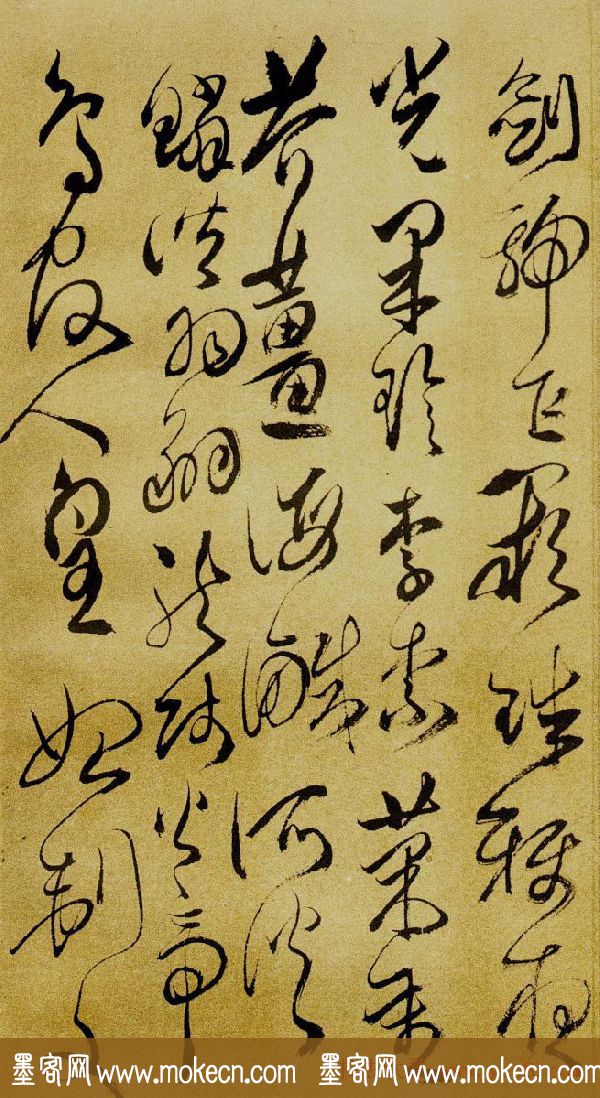 劍號巨闕珠稱夜
光果珍李柰菜重
芥薑海鹹河淡
鱗潛羽翔龍師火帝
鳥官人皇始制
墨客网 www.mokecn.com 墨客网 www.mokecn.com